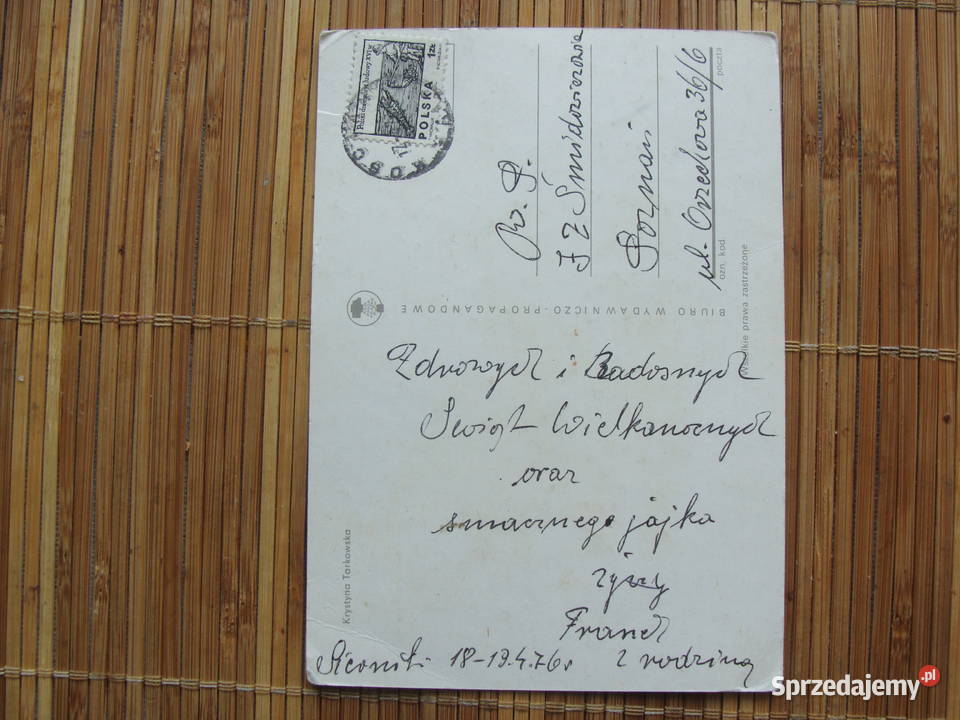 Zdrowych i Radosnych
Świąt Wielkanocnych
oraz
smacznego jajka
życzy
Franch
z rodziną
18-19.4.76r
W. P.
J Z Śmidowiczowie
Poznań
ul. Orzechowa 36/6
poczta
ozn. kod
Wszelkie prawa zastrzeżone
BIURO WYDAWNICZO-PROPAGANDOWE
Krystyna Tarkowska
POLSKA
1ZŁ
Sprzedajemy.pl